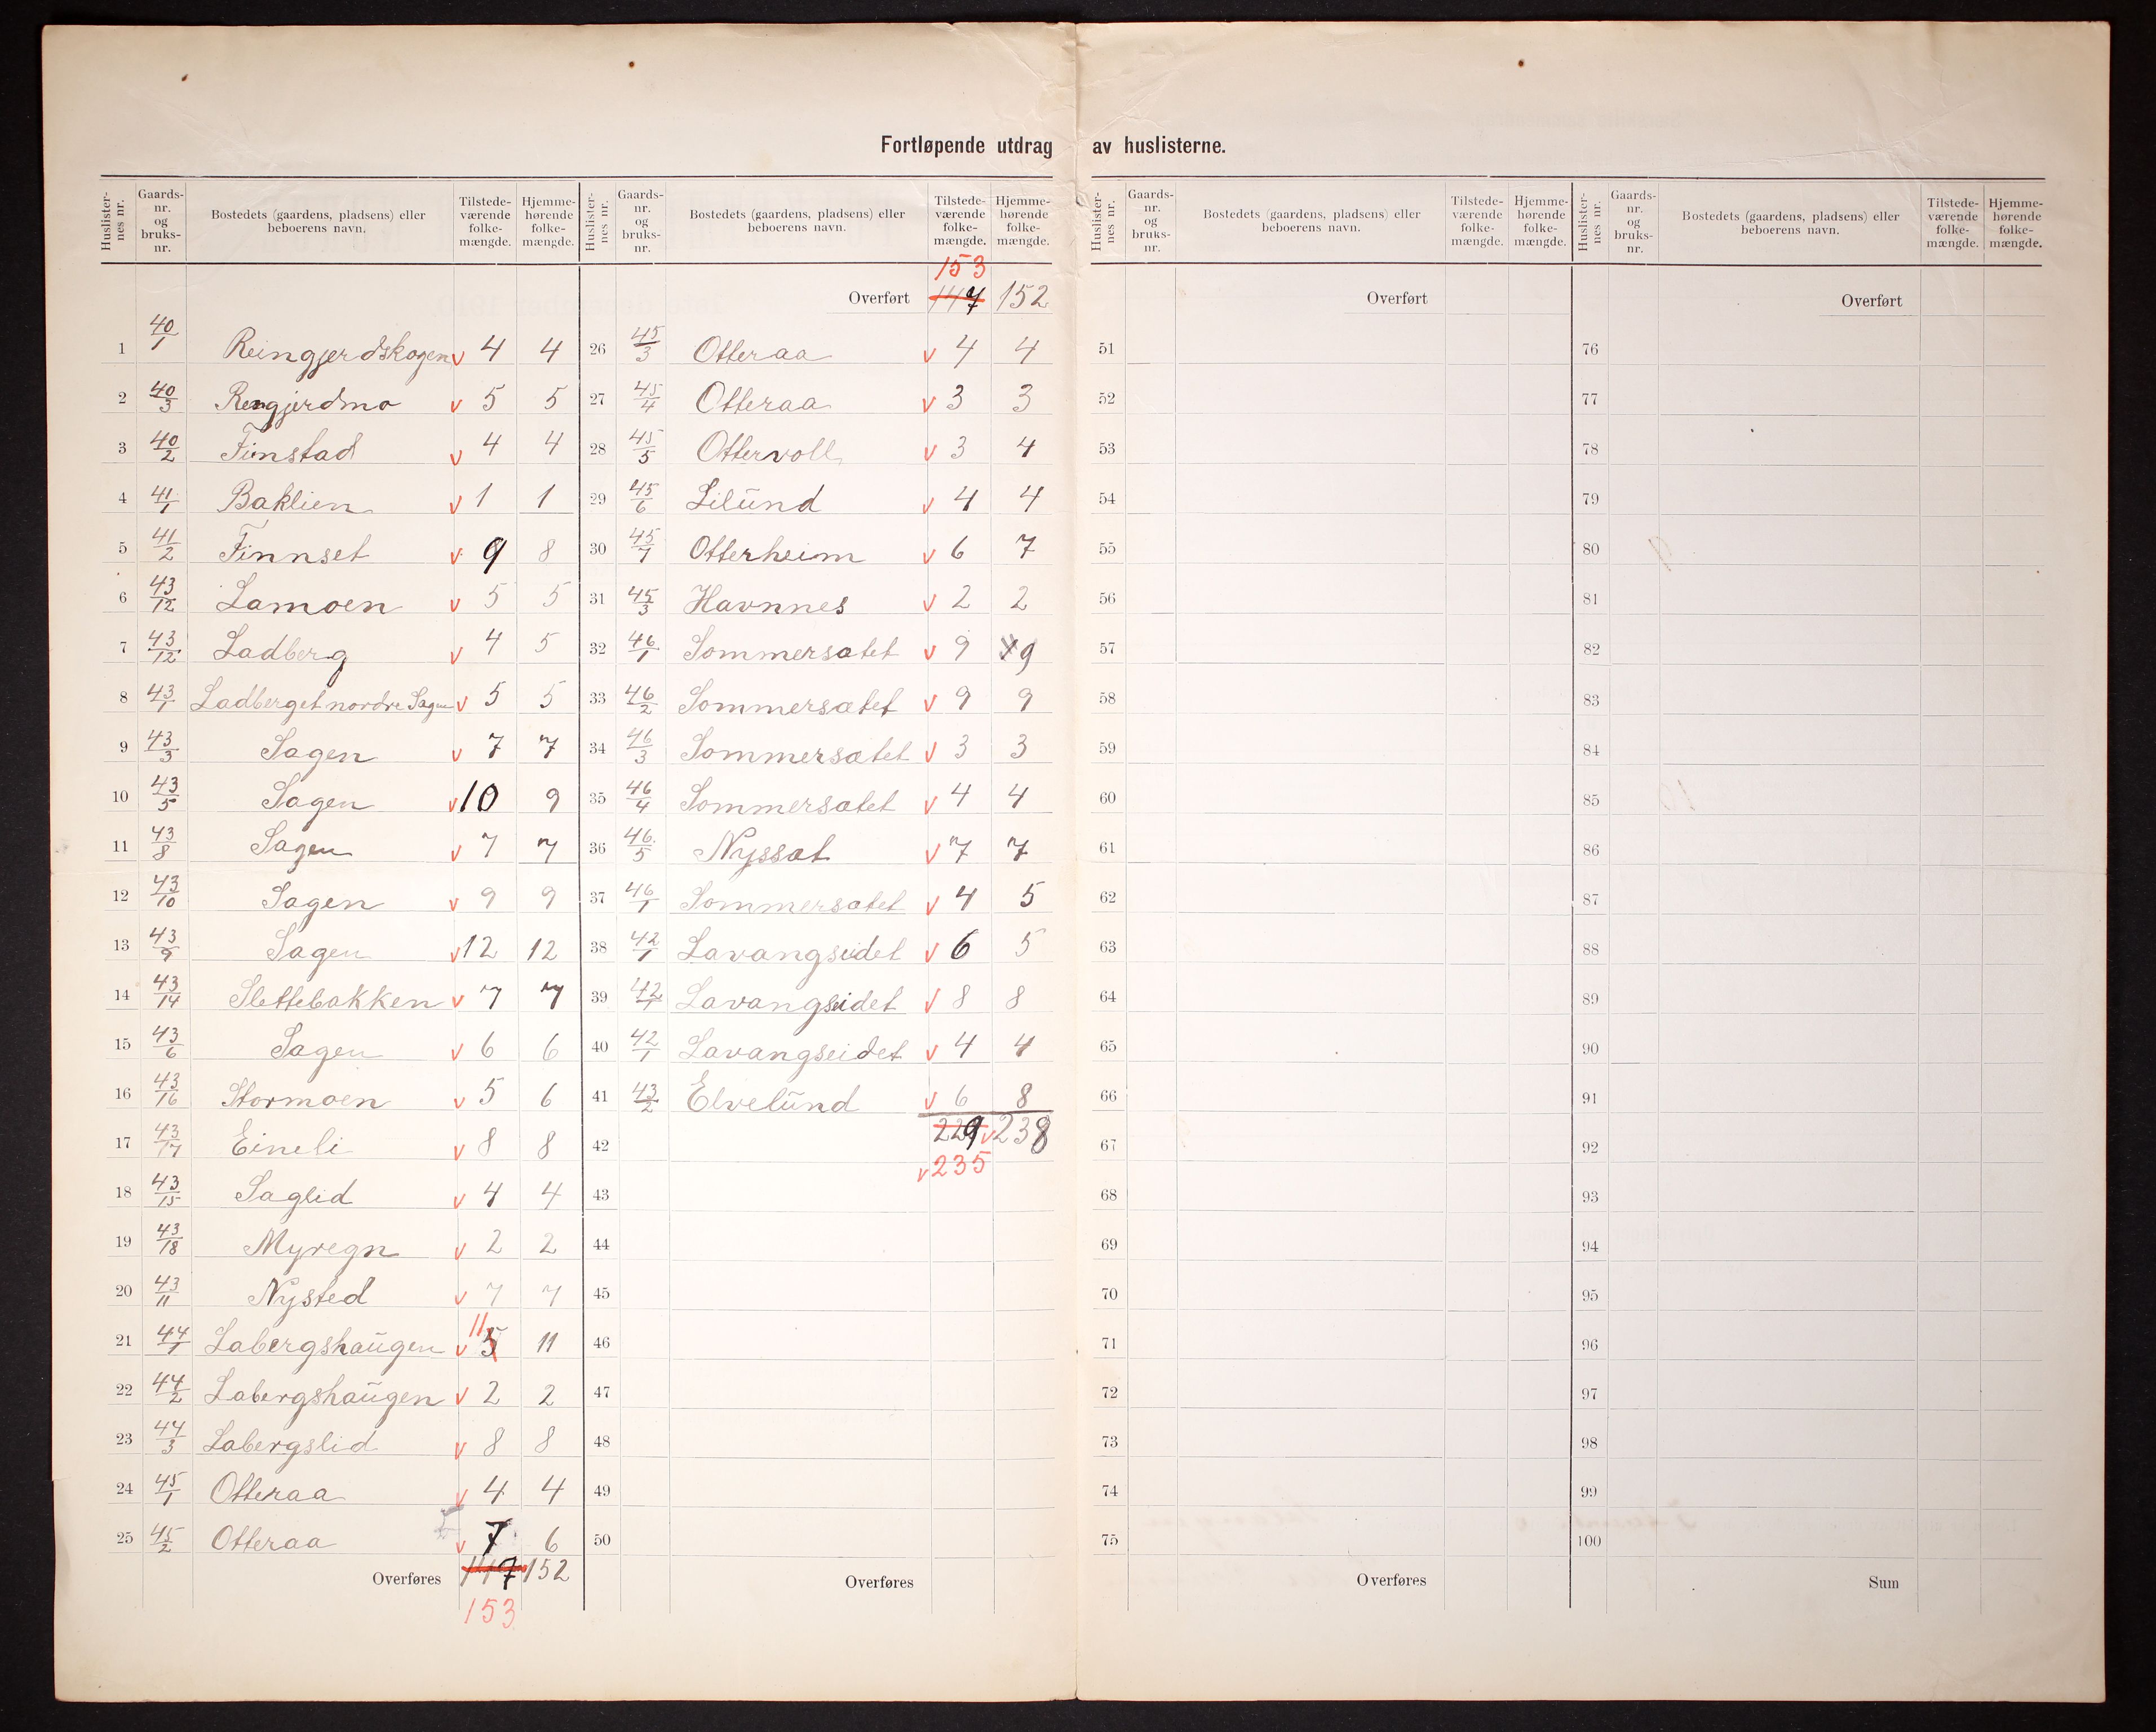 Fortløpende utdrag av huslisterne.
Huslister-nes nr. Gaards-nr. og bruks-nr. Bostedets (gaardens, pladsens) eller beboerens navn. Tilstede-værende folke-mængde. Hjemme-hørende folke-mængde.
1 40/1 Reingjerdskogen v 4 4
2 40/3 Rengjerdmo v 5 5
3 40/2 Finstad v 4 4
4 41/1 Baklien v 1 1
5 41/2 Finnset v 9 8
6 43/12 Lamoen v 5 5
7 43/12 Ladberg v 4 5
8 43/1 Ladberget nordre Sagen v 5 5
9 43/3 Sagen v 7 7
10 43/5 Sagen v 10 9
11 43/8 Sagen v 7 7
12 43/10 Sagen v 9 9
13 43/9 Sagen v 12 12
14 43/14 Slettebakken v 7 7
15 43/6 Sagen v 6 6
16 43/16 Stormoen v 5 6
17 43/17 Eineli v 8 8
18 43/15 Saglid v 4 4
19 43/18 Myregn v 2 2
20 43/11 Nysted v 7 7
21 44/1 Labergshaŭgen v 5 11 11
22 44/2 Labergshaŭgen v 2 2
23 44/3 Labergslid v 8 8
24 45/1 Otteraa v 4 4
25 45/2 Otteraa v 7 6
Overføres 147 152
153
Huslister-nes nr. Gaards-nr. og bruks-nr. Bostedets (gaardens, pladsens) eller beboerens navn. Tilstede-værende folke-mængde. Hjemme-hørende folke-mængde.
153
Overført 147 152
26 45/3 Otteraa v 4 4
27 45/4 Otteraa v 3 3
28 45/5 Ottervoll v 3 4
29 45/6 Lilŭnd v 4 4
30 45/7 Otterheim v 6 7
31 45/3 Havnnes v 2 2
32 46/1 Sommersætet v 9 9
33 46/2 Sommersætet v 9 9
34 46/3 Sommersætet v 3 3
35 46/4 Sommersætet v 4 4
36 46/5 Nyssæt v 7 7
37 46/1 Sommersætet v 4 5
38 42/1 Lavangseidet v 6 5
39 42/1 Lavangseidet v 8 8
40 42/1 Lavangseidet v 4 4
41 43/2 Elvelŭnd v 6 8
42 229 v 238
v 235
43
44
45
46
47
48
49
50
Overføres
Huslister-nes nr. Gaards-nr. og bruks-nr. Bostedets (gaardens, pladsens) eller beboerens navn. Tilstede-værende folke-mængde. Hjemme-hørende folke-mængde.
Overført
51
52
53
54
55
56
57
58
59
60
61
62
63
64
65
66
67
68
69
70
71
72
73
74
75
Overføres
Huslister-nes nr. Gaards-nr. og bruks-nr. Bostedets (gaardens, pladsens) eller beboerens navn. Tilstede-værende folke-mængde. Hjemme-hørende folke-mængde.
Overført
76
77
78
79
80
81
82
83
84
85
86
87
88
89
90
91
92
93
94
95
96
97
98
99
100
Sum